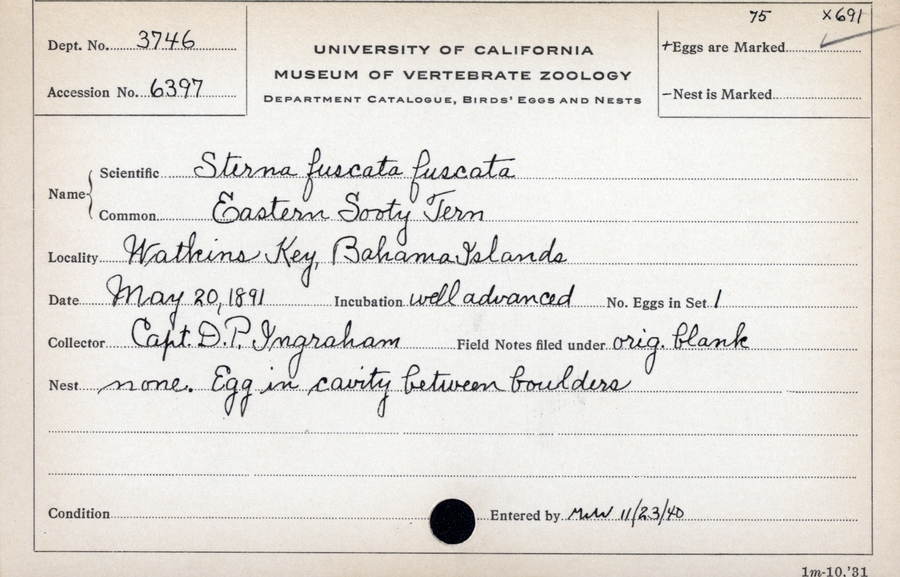 75 X691
Dept. No. 3746
UNIVERSITY OF CALIFORNIA
+Eggs are Marked
MUSEUM OF VERTEBRATE ZOOLOGY
Accession No. 6397
DEPARTMENT CATALOGUE, BIRDS' EGGS AND NESTS
-Nest is Marked
Name
Scientific Sterna fuscata fuscata
Common Eastern Sooty Tern
Locality Watkins Key, Bahama Islands
Date May 20, 1891 Incubation well advanced No. Eggs in Set 1
Collector Capt. D.P. Ingraham Field Notes filed under orig. blank
Nest none. Egg in cavity between boulders
Condition Entered by 11/23/40
1m-10,'31